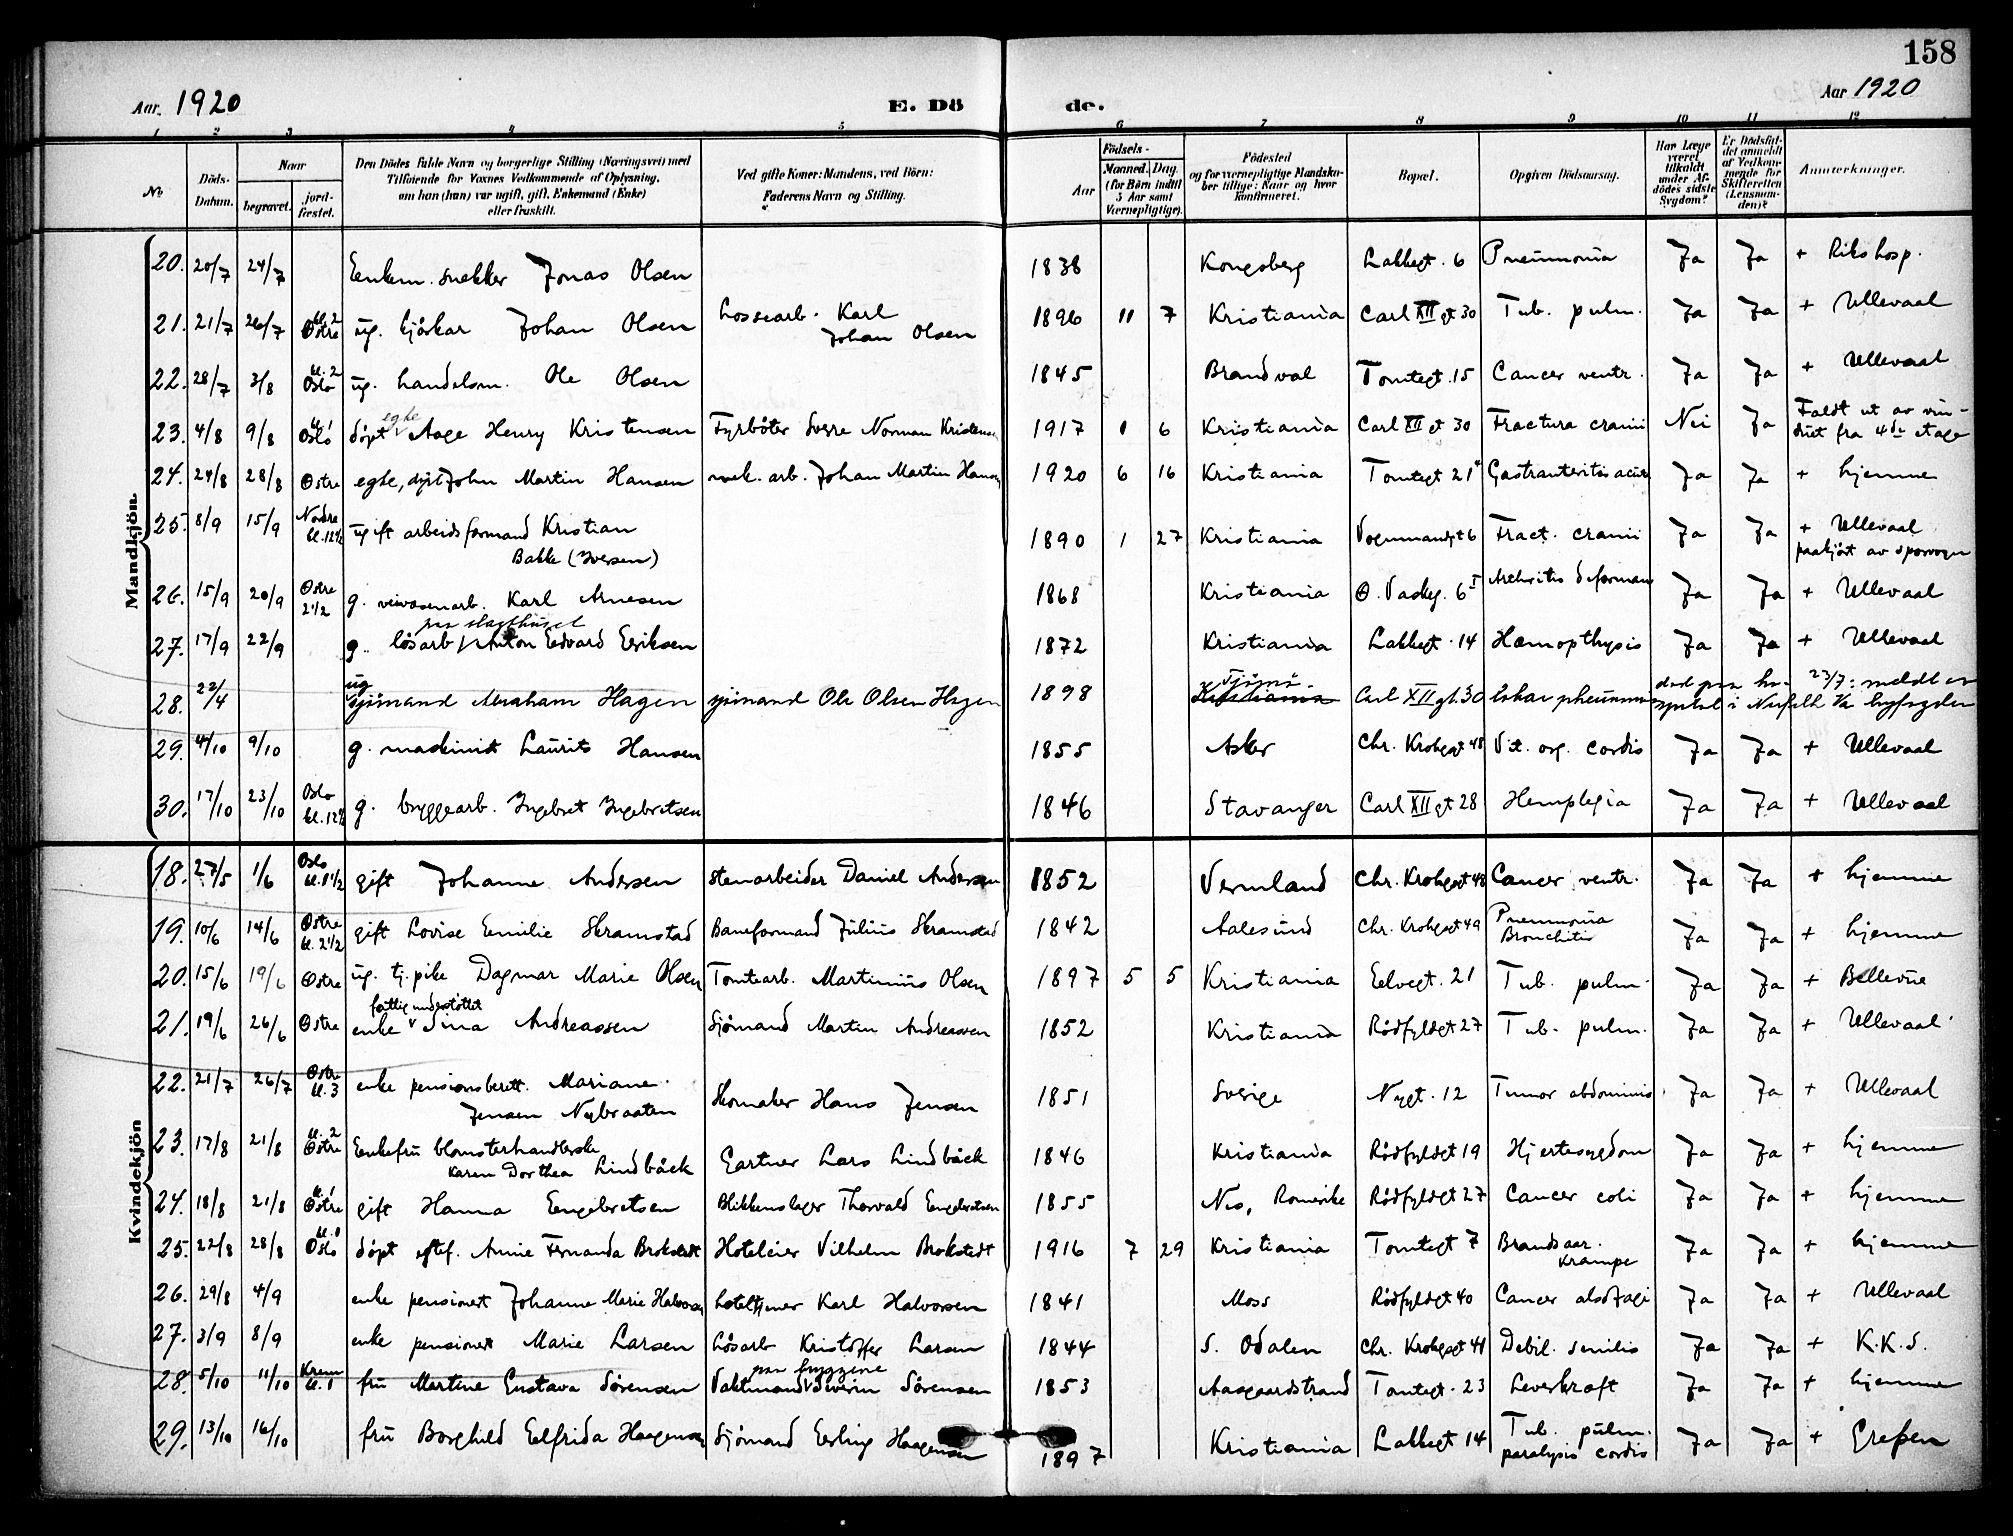 158
Aar. 1920
E. Dö
de.
Aar 1920
1 2 3 4 5 6 7 8 9 10 11 12
No
Döds-Datum.
Naar
begravet.
jord-fæstet.
Den Dödes fulde Navn og borgerlige Stilling (Næringsvei) med
Tilföiende for Voxnes Vedkommende af Oplysning,
om han (hun) var ugift, gift, Enkemand (Enke)
eller fraskilt.
Ved gifte Koner: Mandens, ved Börn:
Faderens Navn og Stilling.
Födsels-
Aar
Maaned. Dag.
(for Börn indtil
5 Aar samt
Værnepligtige).
Födested
og for værnepligtige Mandska-
ber tillige: Naar og hvor
konfirmeret.
Bopæl.
Opgiven Dödsaarsag.
Har Læge
været
tilkaldt
under Af-
dödes sidste
Sygdom?
Er Dödsfal-
det anmeldt
af Vedkom-
mende for
Skifteretten
(Lensman-
den)?
Anmerkninger.
Mandkjön
20. 20/7 24/7 Enkem. snekker Jonas Olsen 1838 Kongsberg Lakkegt. 6 Pneumonia Ja Ja + Rikshosp.
21. 21/7 26/7 kl. 2 Østre ug. kjörkar Johan Olsen Lossearb. Karl Johan Olsen 1896 11 7 Kristiania Carl XII gt 30 Tub. pulm. Ja Ja + Ullevaal
22. 28/7 3/8 kl. 2 Oslo ug. handelsm. Ole Olsen 1845 Brandval Tomtegt. 15 Cancer ventr. Ja Ja + Ullevaal
23. 4/8 9/8 kl. 1 Oslo döpt egte Aage Henry Kristensen Fyrböter Sverre Norman Kristensen 1917 1 6 Kristiania Carl XII gt 30 Fractura cranii Nei Ja Faldt ut av vin-
duet fra 4de etage
24. 24/8 28/8 Østre egte, döpt John Martin Hansen mek. arb. Johan Martin Hansen 1920 6 16 Kristiania Tomtegt 21 Gastroenteritis acuta Ja Ja + hjemme
25. 8/9 15/9 Nordre kl. 12½ ugift arbeidsformand Kristian
Bakke (Iversen) 1890 1 27 Kristiania Vognmandsgt 6 Fract. cranii Ja Ja + Ullevaal
paakjört av sporvogn
26. 15/9 20/9 Østre 2 1/2 g. veivæsenarb. Karl Arnesen 1868 Kristiania Ø. Vaskeg. 6 I Arthritis deformans Ja Ja + Ullevaal
27. 17/9 22/9 g. lösarb paa slagthuset Anton Edvard Eriksen 1872 Kristiania Lakkegt. 14 Hæmopthysis Ja Ja + Ullevaal
28. 22/4 ug sjömand Abraham Hagen sjömand Ole Olsen Hagen 1898 Tjömö Kristiania Carl XII gt. 30 Lobar pneumoni död paa ho- 23/7: meldt av
spital i Norfolk Va byfogden
29. 4/10 9/10 g. maskinist Laurits Hansen 1855 Asker Chr. Krohgsgt 48 Vit. org. cordis Ja Ja + Ullevaal
30. 17/10 23/10 Oslo kl. 12½ g. bryggearb. Ingebret Ingebretsen 1846 Stavanger Carl XII gt 28 Hemplegia Ja Ja + Ullevaal
Kvindekjön
18. 27/5 1/6 Oslo kl. 1 1/2 gift Johanne Andersen stenarbeider Daniel Andersen 1852 Vermland Chr. Krohgsgt 48 Cancer ventr. Ja Ja + hjemme
19. 10/6 14/6 Østre kl. 2 1/2 gift Lovise Emilie Skramstad Baneformand Julius Skramstad 1842 Aalesund Chr. Krohgsgt 49 Pneumonia
Bronchitis Ja Ja + hjemme
20. 15/6 19/6 Østre ug. tj. pike Dagmar Marie Olsen Tomtearb. Martinius Olsen 1897 5 5 Kristiania Eelvegt. 21 Tub. pulm. Ja Ja + Bellevue
21. 19/6 26/6 Østre enke fattigunderstöttet Sina Andreassen Sjömand Martin Andreassen 1852 Kristiania Rödfyldgt 27 Tub. pulm. Ja Ja + Ullevaal
22. 21/7 26/7 Østre kl. 3 enke pensionsberett. Mariane
Jensen Nybraaten Skomaker Hans Jensen 1851 Sverige Nygt. 12 Tumor abdominis Ja Ja + Ullevaal
23. 17/8 21/8 kl. 2 Østre Enkefru blomsterhandlerske
Karen Dorthea Lindbäck Gartner Lars Lindbäck 1846 Kristiania Rödfyldgt 19 Hjertesygdom Ja Ja + hjemme
24. 18/8 21/8 kl. 1 Østre gift Hanna Engebretsen Blikkenslager Thorvald Engebretsen 1855 Nes, Romerike Rödfyldgt 27 Cancer coli Ja Ja + hjemme
25. 22/8 28/8 kl. 1 Oslo döpt egtef. Annie Fernanda Brokstedt Hoteleier Vilhelm Brokstedt 1916 7 29 Kristiania Tomtegt 7 Brandsaar.
Krampe Ja Ja + hjemme
26. 29/8 4/9 enke pensionert Johanne Marie Halvorsen hoteltjener Karl Halvorsen 1841 Moss Rödfyldgt 40 Cancer Ja Ja + Ullevaal
27. 3/9 8/9 enke pensionert Marie Larsen Lösarb Kristoffer Larsen 1844 S. Odalen Chr. Krohgsgt 41 Debil. senilis Ja Ja + K.K.S.
28. 5/10 11/10 Krem kl. 1 fru Martine Gustava Sörensen Vaktmand paa bryggene Severin Sörensen 1853 Aasgaardstrand Tomtegt. 23 Leverkræft Ja Ja + hjemme
29. 13/10 16/10 fru Borghild Elfrida Haagensen Sjömand Erling Haagensen 1897 Kristiania Lakkegt 14 Tub. pulm.
paralysis cordis Ja Ja + Grefsen